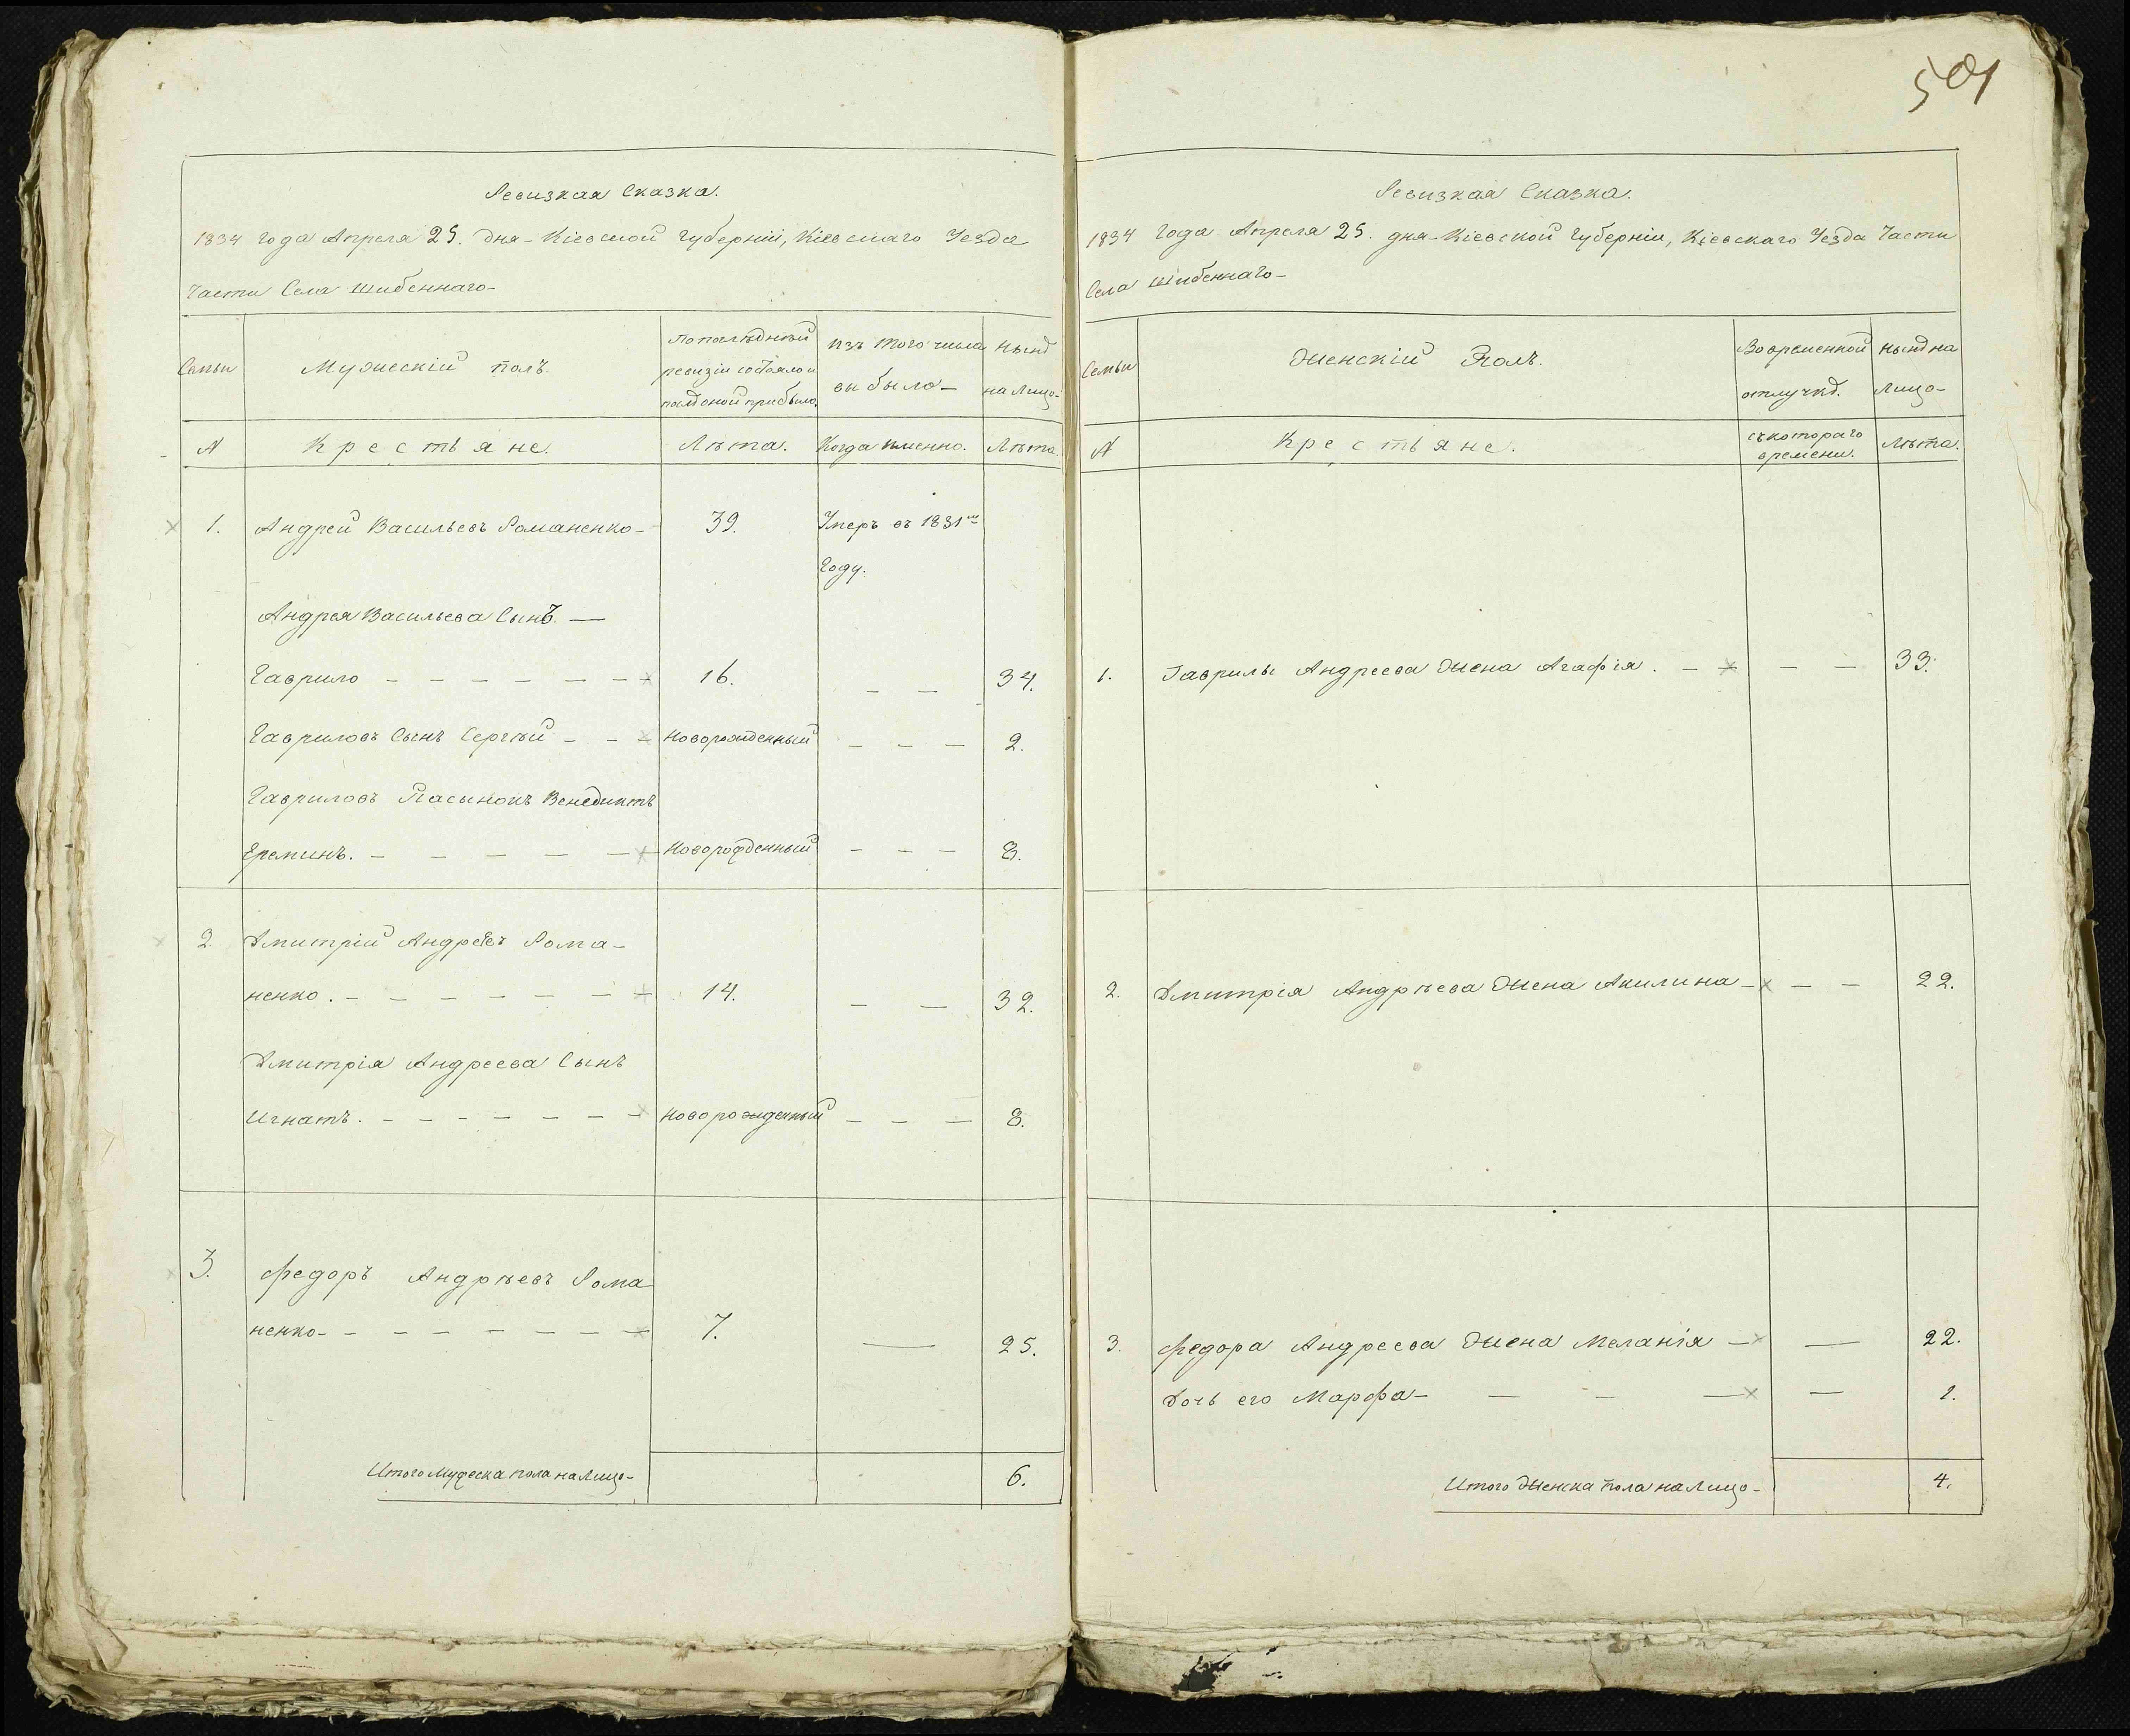 501
Ревизкая Сказка.
1834 года Апреля 25. дня - Кіевской губерніи, Кіевскаго Уезда
Части Села Шибеннаго -
Семьи
Мужескій полъ.
По последней ревизіи состояло и после оной прибыло.
Изъ того числа выбыло -
Ныне на лицо -
N
Крестьяне.
Лѣта.
Когда именно.
Лѣта.
1. Андрей Васильевъ Романенко - 39. Умеръ въ 1831мъ
году.
Андрея Васильева Сынъ. —
Гаврило - - - - - - - 16. - - 34.
Гавриловъ Сынъ Сергѣй - - - Новорожденный - - - 2.
Гавриловъ Пасынокъ Венедиктъ
Ереминъ. - - - - - - Новорожденный - - - 8.
2. Дмитрій Андреевъ Рома-
ненко. - - - - - - - 14. - - 32.
Дмитрія Андреева Сынъ
Игнатъ. - - - - - - - Новорожденный - - - 8.
3. Федоръ Андрѣевъ Рома
ненко - - - - - - - - 7. — 25.
Итого Мужеска пола на Лицо - 6.
Ревизкая Сказка.
1834 года Апреля 25. дня - Кіевской губерніи, Кіевскаго Уезда Части
Села Шибеннаго -
Семьи
Женскій Полъ.
Во временной отлучке.
Ныне на Лицо -
N
Крестьяне.
съ котораго времени.
Лѣта.
1. Гаврилы Андреева Жена Агафія. - - - 33.
2. Дмитрія Андрѣева Жена Акилина - - - 22.
3. Федора Андреева Жена Меланія - — 22.
Дочь его Марфа - — - — — 1.
Итого Женска пола на Лицо - 4.